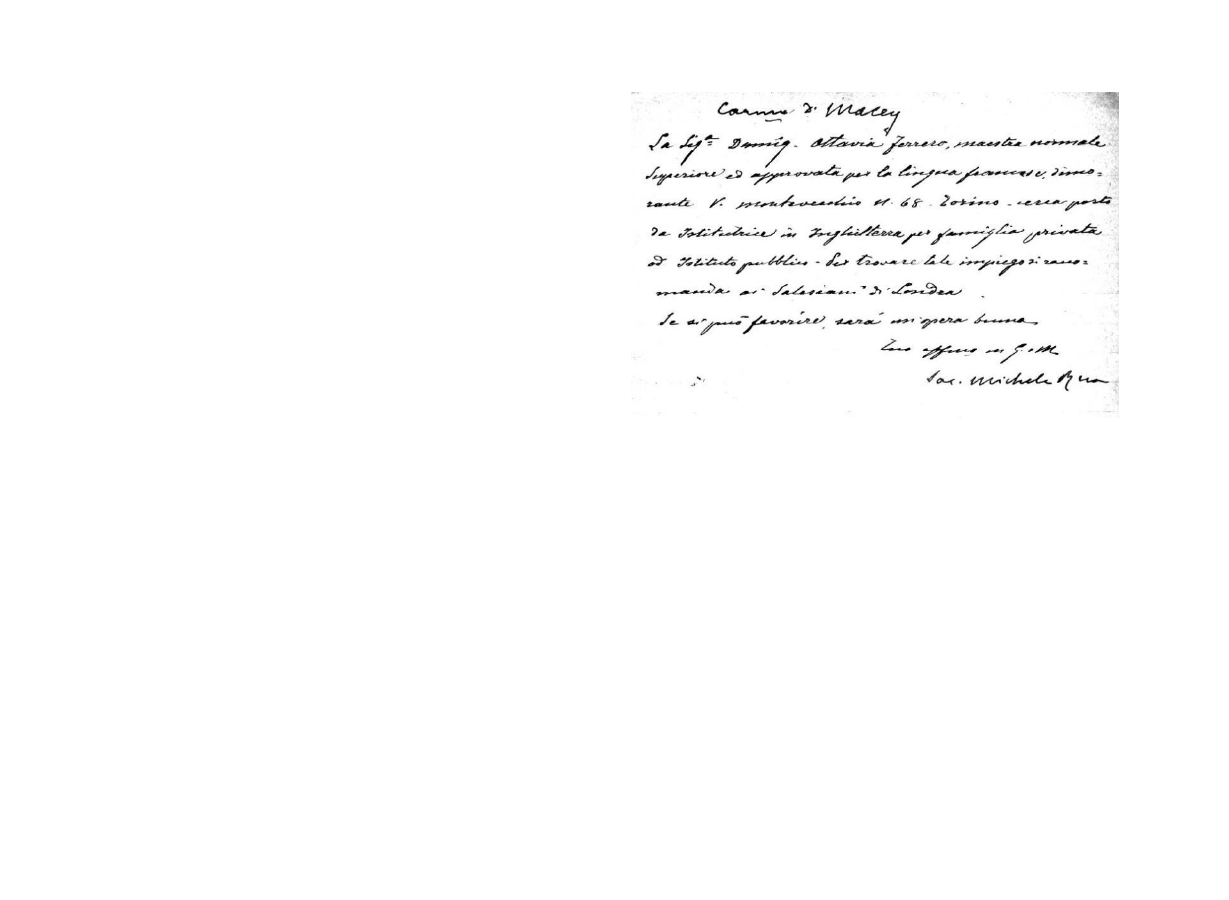 Car.mo D. Macey
La Sig.ª Damig. Ottavia Ferrero, maestra normale
superiore ed approvata per la lingua francese, dimo=
rante V. Montevecchio N. 68. Torino - cerca posto
da Istitutrice in Inghilterra per famiglia privata
od Istituto pubblico - Per trovare tale impiego si racco=
manda ai Salesiani di Londra
Se si può favorire, sarà un'opera buona
Tuo affmo in G. e M.
Sac. Michele Rua